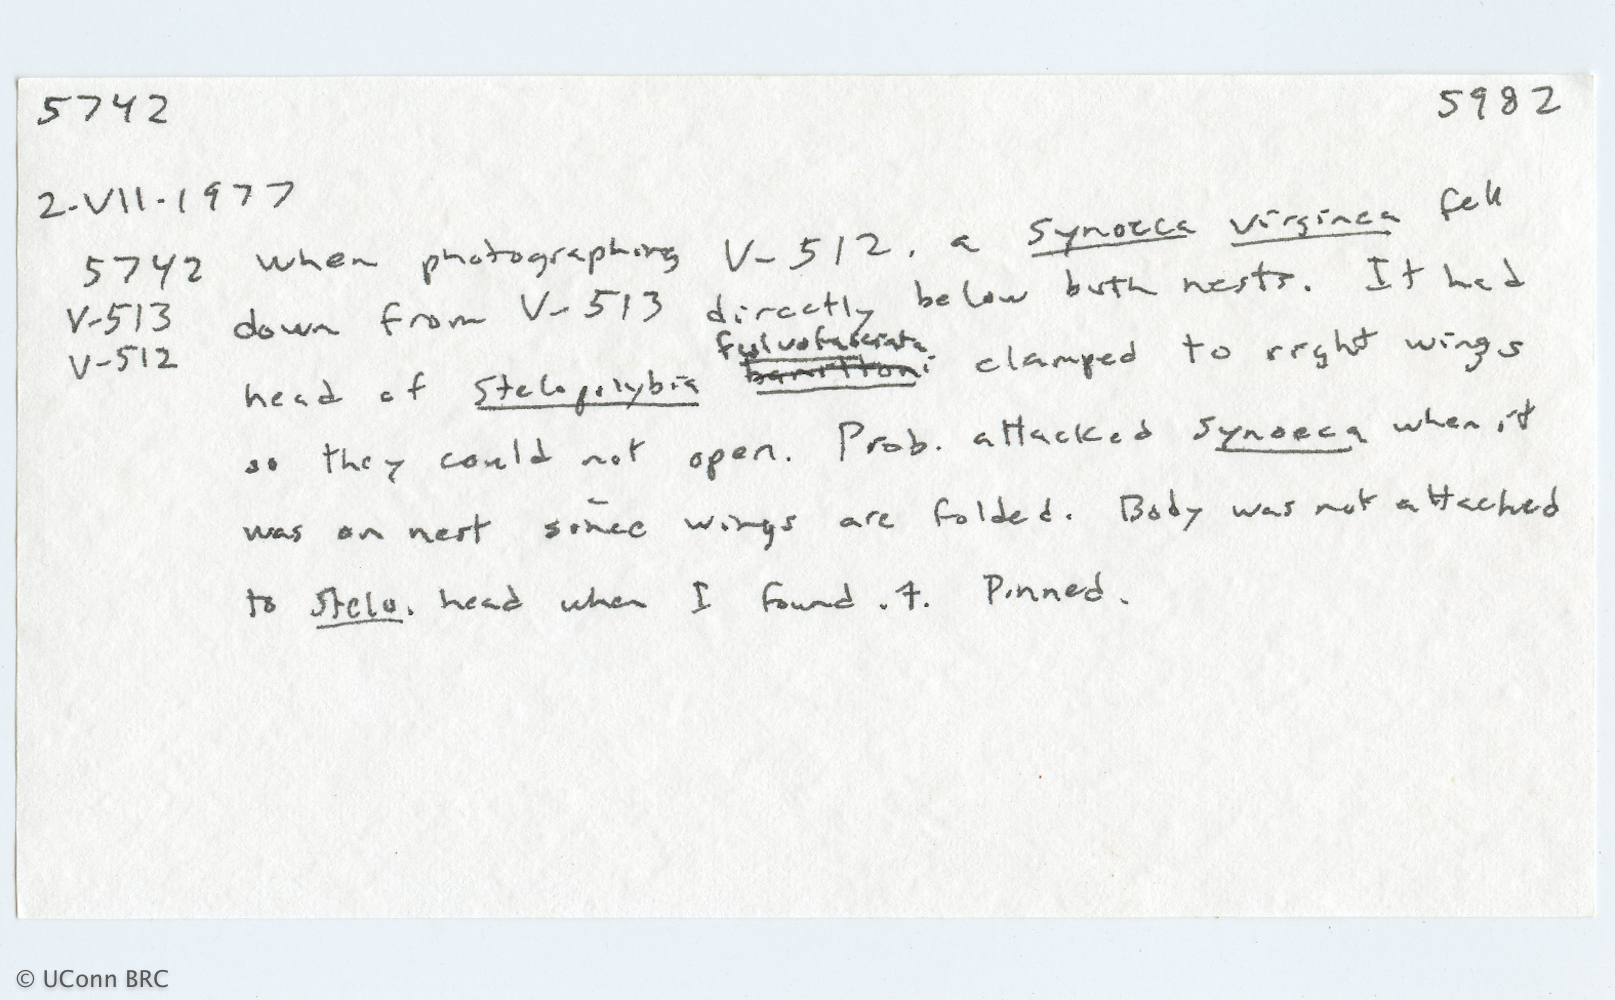 5742 5982
2-VII-1977
5742 When photographing V-512, a Synoeca virginea fell
V-513 down from V-513 directly below both nests. It had
V-512
fulvofasciata
head of Stelopolybia clamped to right wings
so they could not open. Prob. attacked Synoeca when it
was on nest since wings are folded. Body was not attached
to Stelo. head when I found it. Pinned.
© UConn BRC